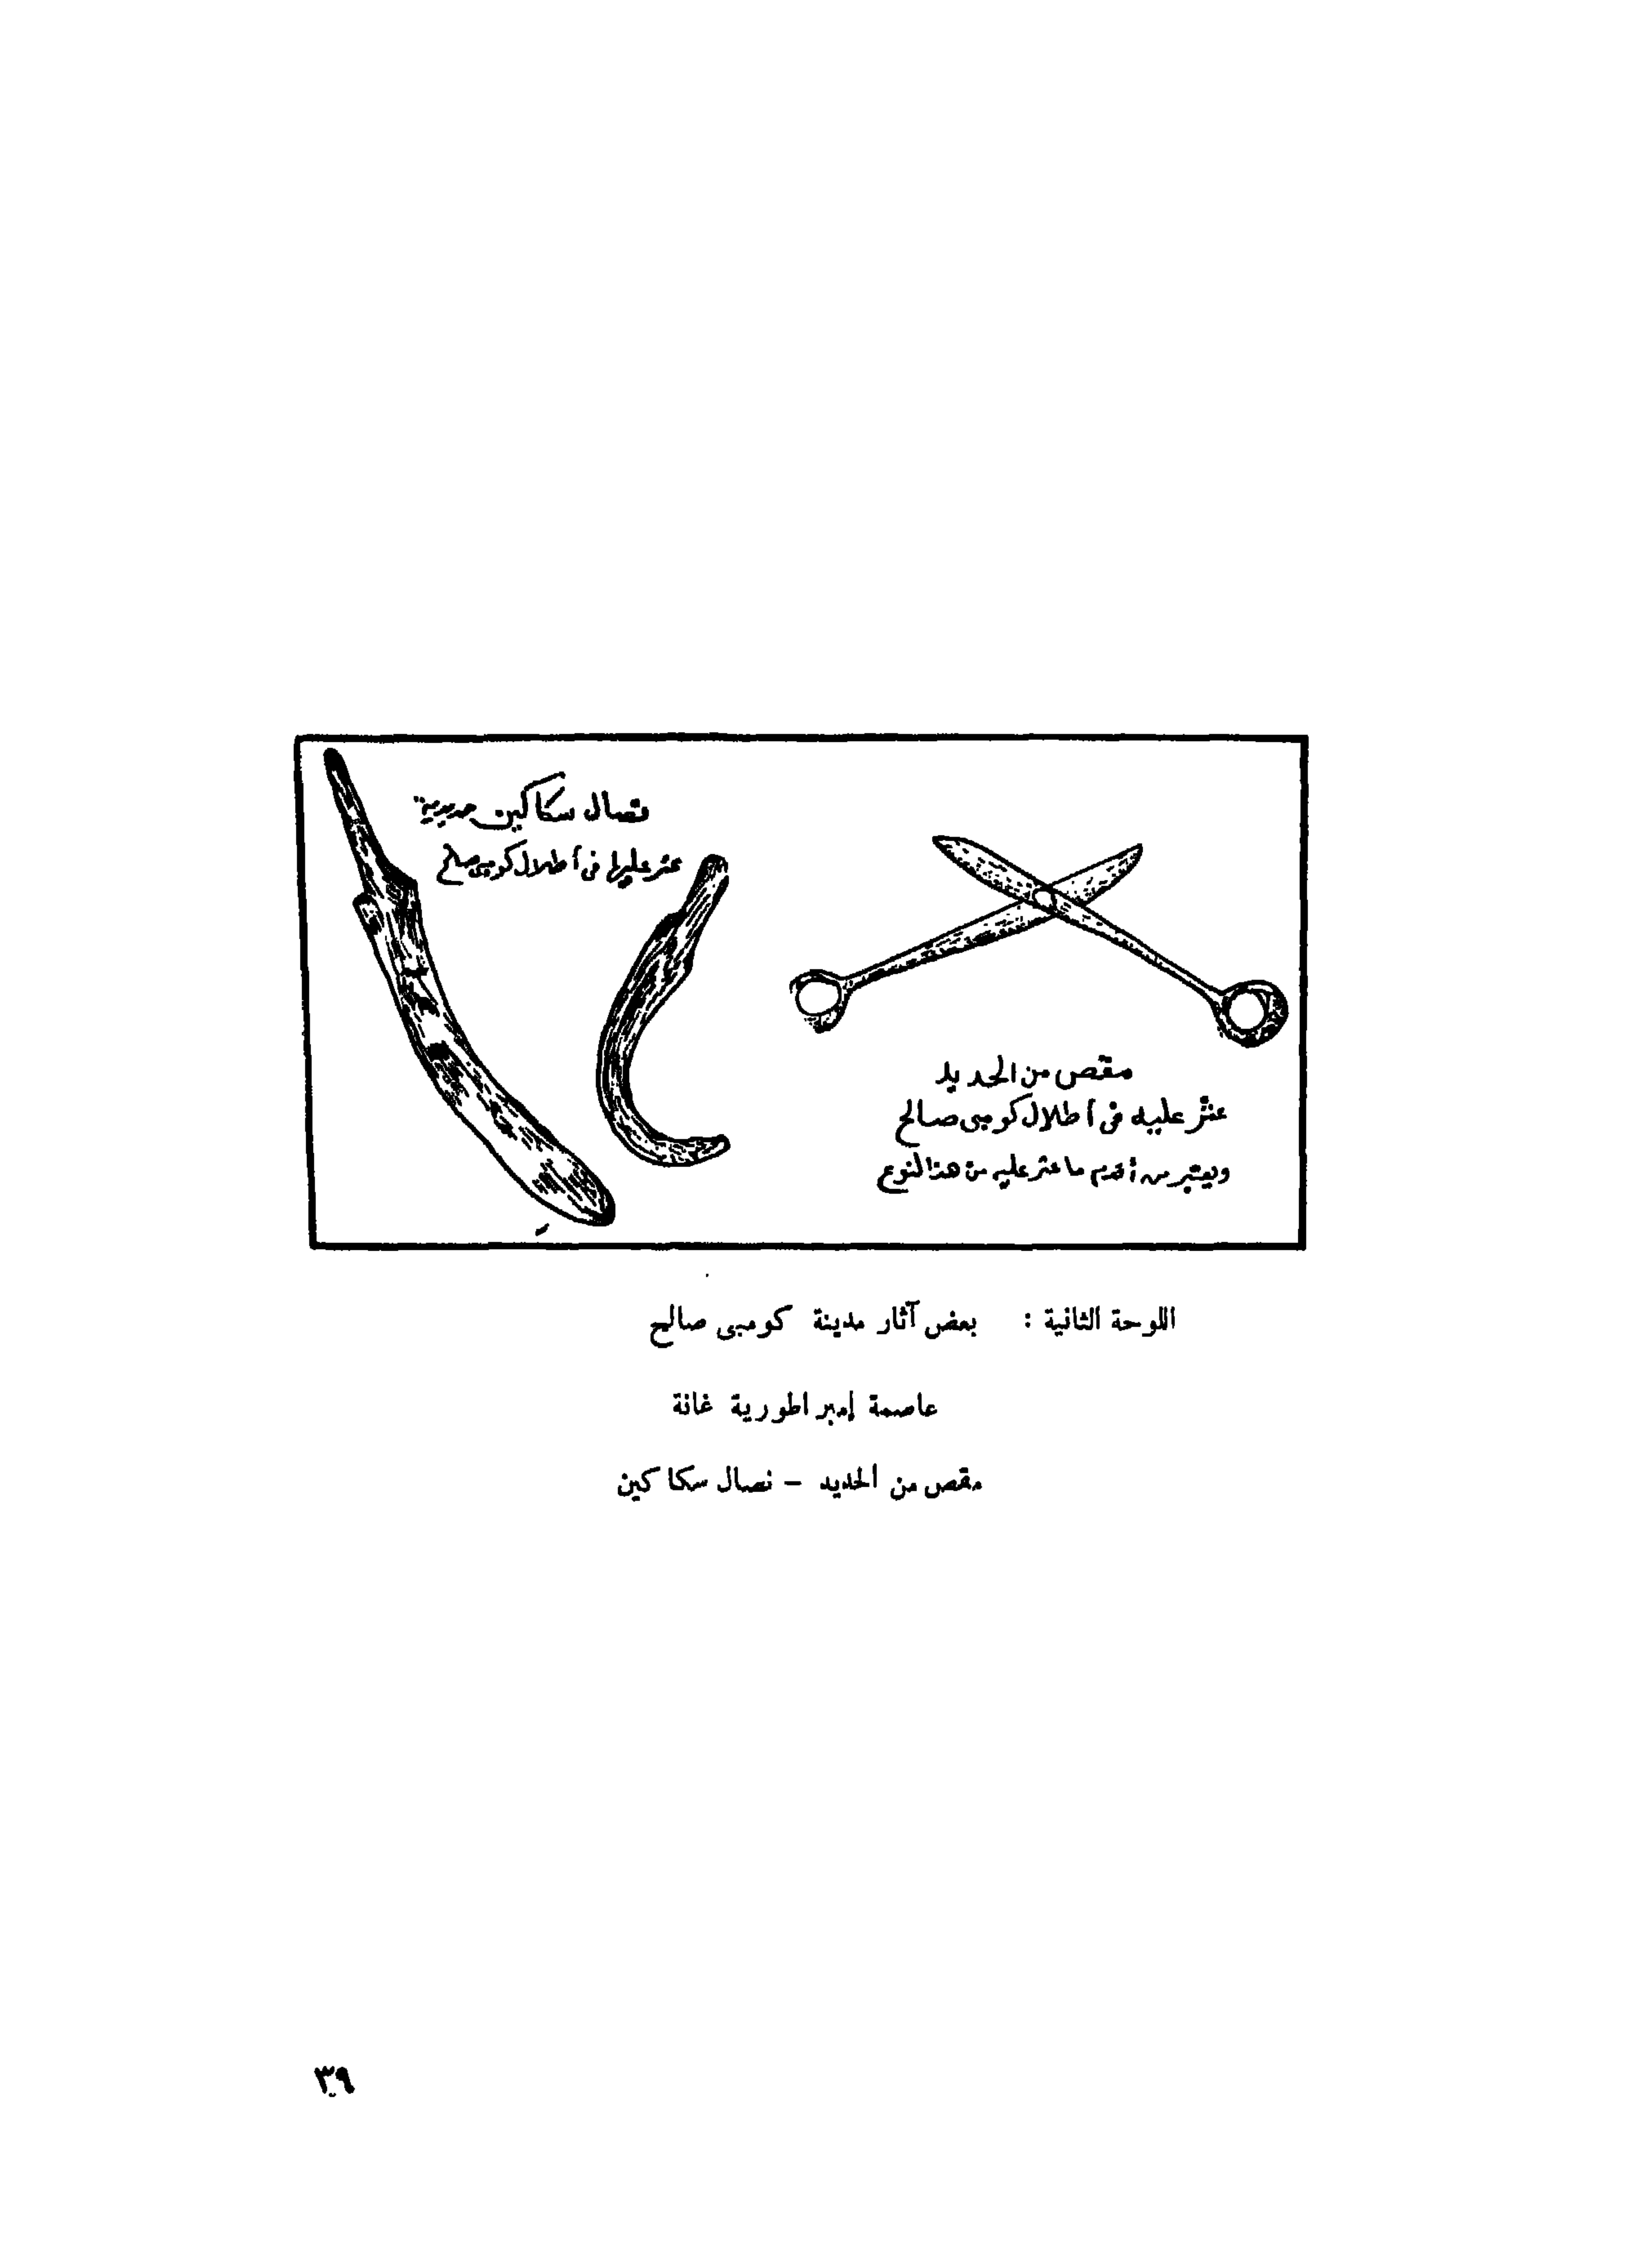 نصال سكاكين حديدية
عثر عليها فى أطلال كومبى صالح
مقص من الحديد
عثر عليه فى أطلال كومبى صالح
ويعتبر من أقدم ما عثر عليه من هذا النوع
اللوحة الثانية : بعض آثار مدينة كومبى صالح
عاصمة إمبراطورية غانة
مقص من الحديد – نصال سكاكين
٣٩